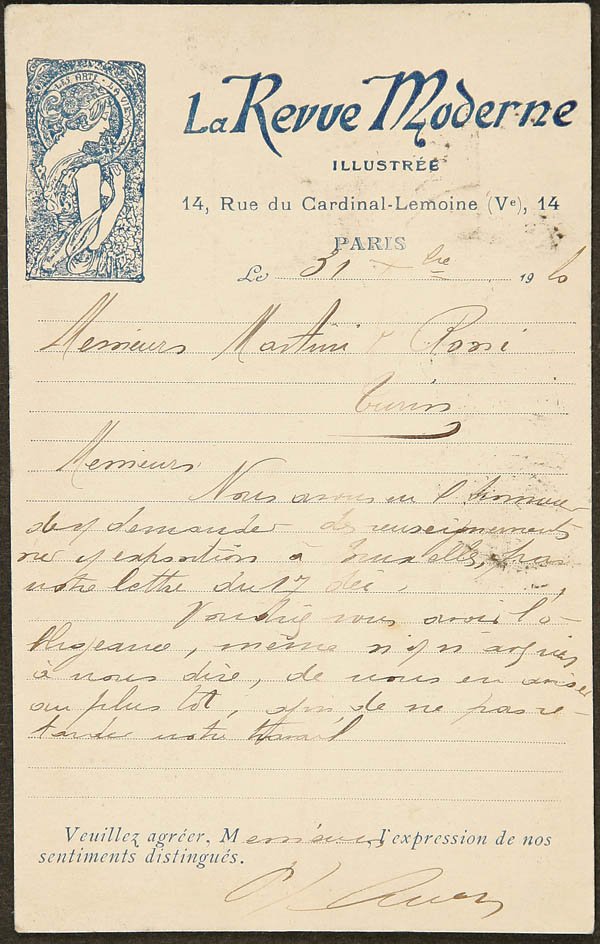 LES ARTS · LA VIE
La Revue Moderne
ILLUSTRÉE
14, Rue du Cardinal-Lemoine (Ve), 14
PARIS
Le 31 Xbre 1910
Messieurs Martini & Rossi
Turin
Messieurs
Nous avons eu l'honneur
de demander des renseignements
exposition à Bruxelles, par
notre lettre du 17 dec.
vous avoir l'o-
bligeance, même si
à nous dire, de nous en aviser
au plus tôt, afin de ne pas re-
tarder notre travail
Veuillez agréer, Messieurs, l'expression de nos
sentiments distingués.